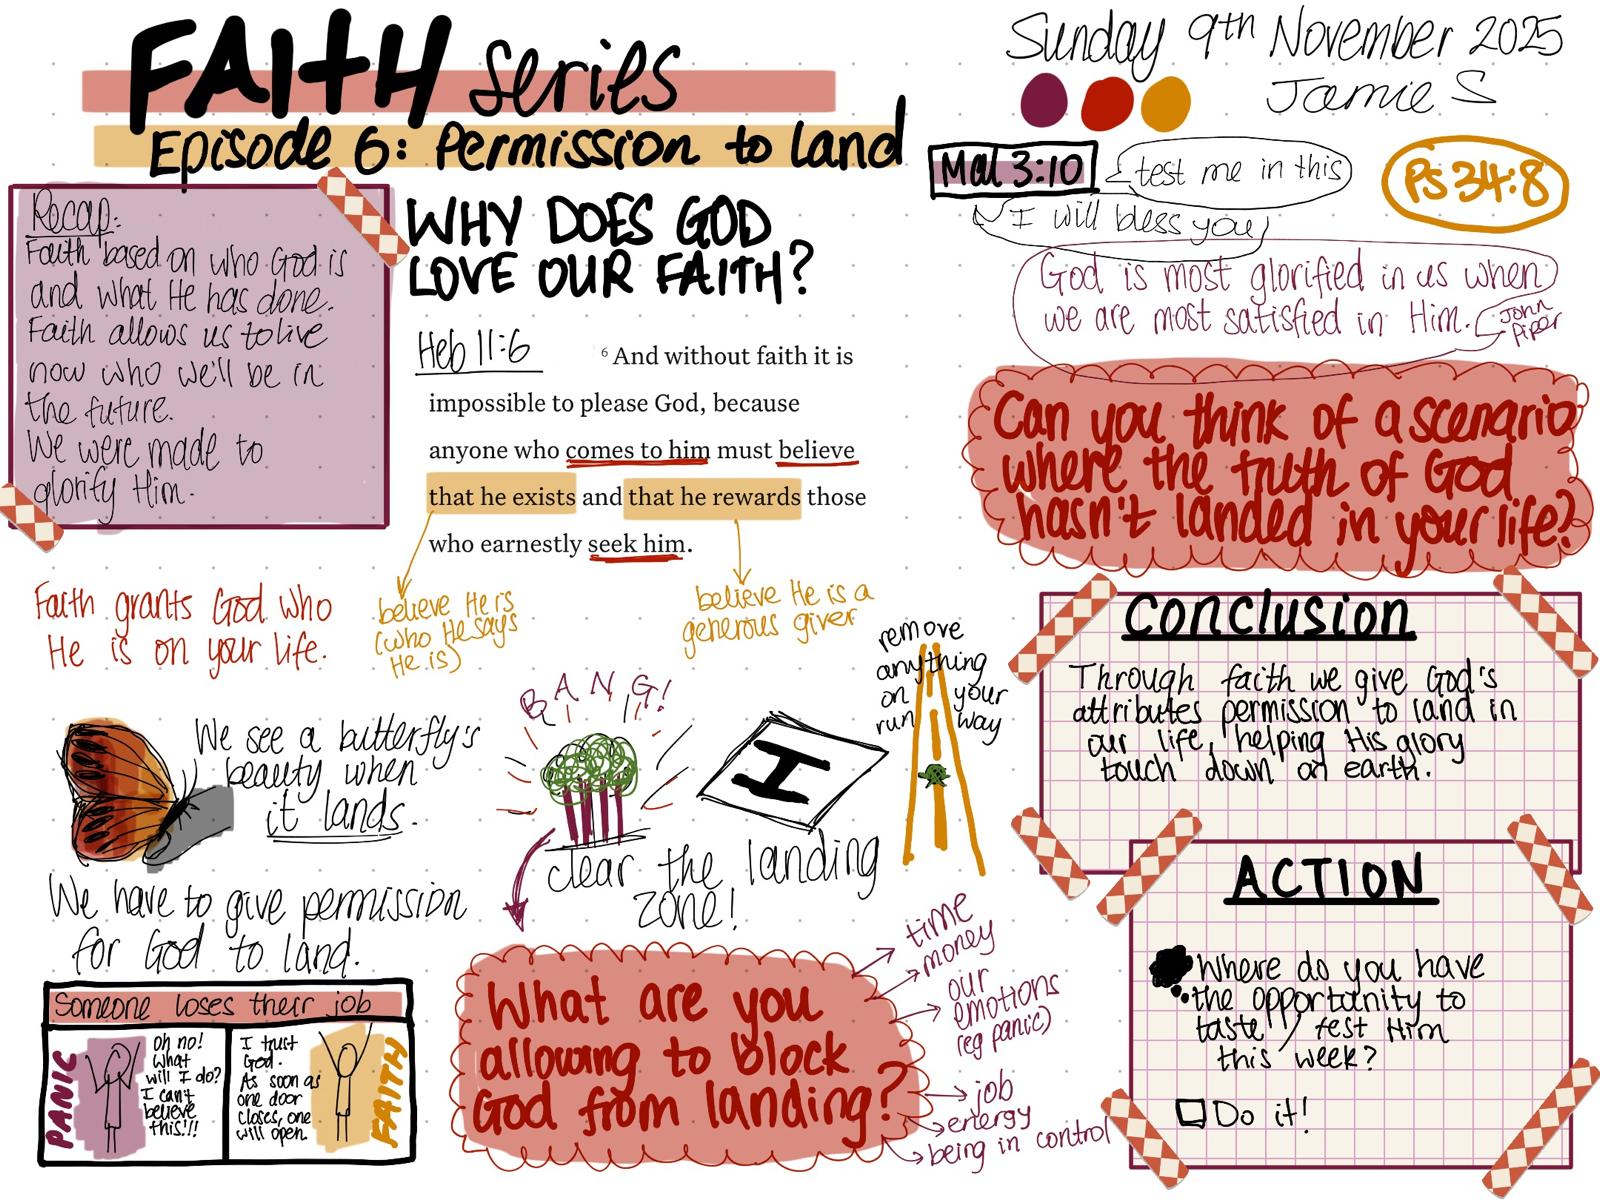 FAITH series
Episode 6: Permission to land
Sunday 9th November 2025
Jamie S
Recap:
Faith based on who God is
and what He has done.
Faith allows us to live
now who we'll be in
the future.
We were made to
glorify Him.
WHY DOES GOD
LOVE OUR FAITH?
Heb 11:6
6 And without faith it is
impossible to please God, because
anyone who comes to him must believe
that he exists and that he rewards those
who earnestly seek him.
believe He is
(who He says
He is)
believe He is a
generous giver
Mal 3:10
test me in this
I will bless you
Ps 34:8
God is most glorified in us when
we are most satisfied in Him.
John
Piper
Can you think of a scenario
where the truth of God
hasn't landed in your life?
Faith grants God who
He is on your life.
We see a butterfly's
beauty when
it lands.
We have to give permission
for God to land.
BANG!
H
clear the landing
zone!
remove
anything
on your
run way
Someone loses their job
PANIC
oh no!
What
will I do?
I can't
believe
this!!!
I trust
God.
As soon as
one door
closes, one
will open.
FAITH
What are you
allowing to block
God from landing?
time
money
our
emotions
(eg panic)
job
energy
being in control
Conclusion
Through faith we give God's
attributes permission to land in
our life, helping His glory
touch down on earth.
ACTION
Where do you have
the opportunity to
taste / test Him
this week?
Do it!